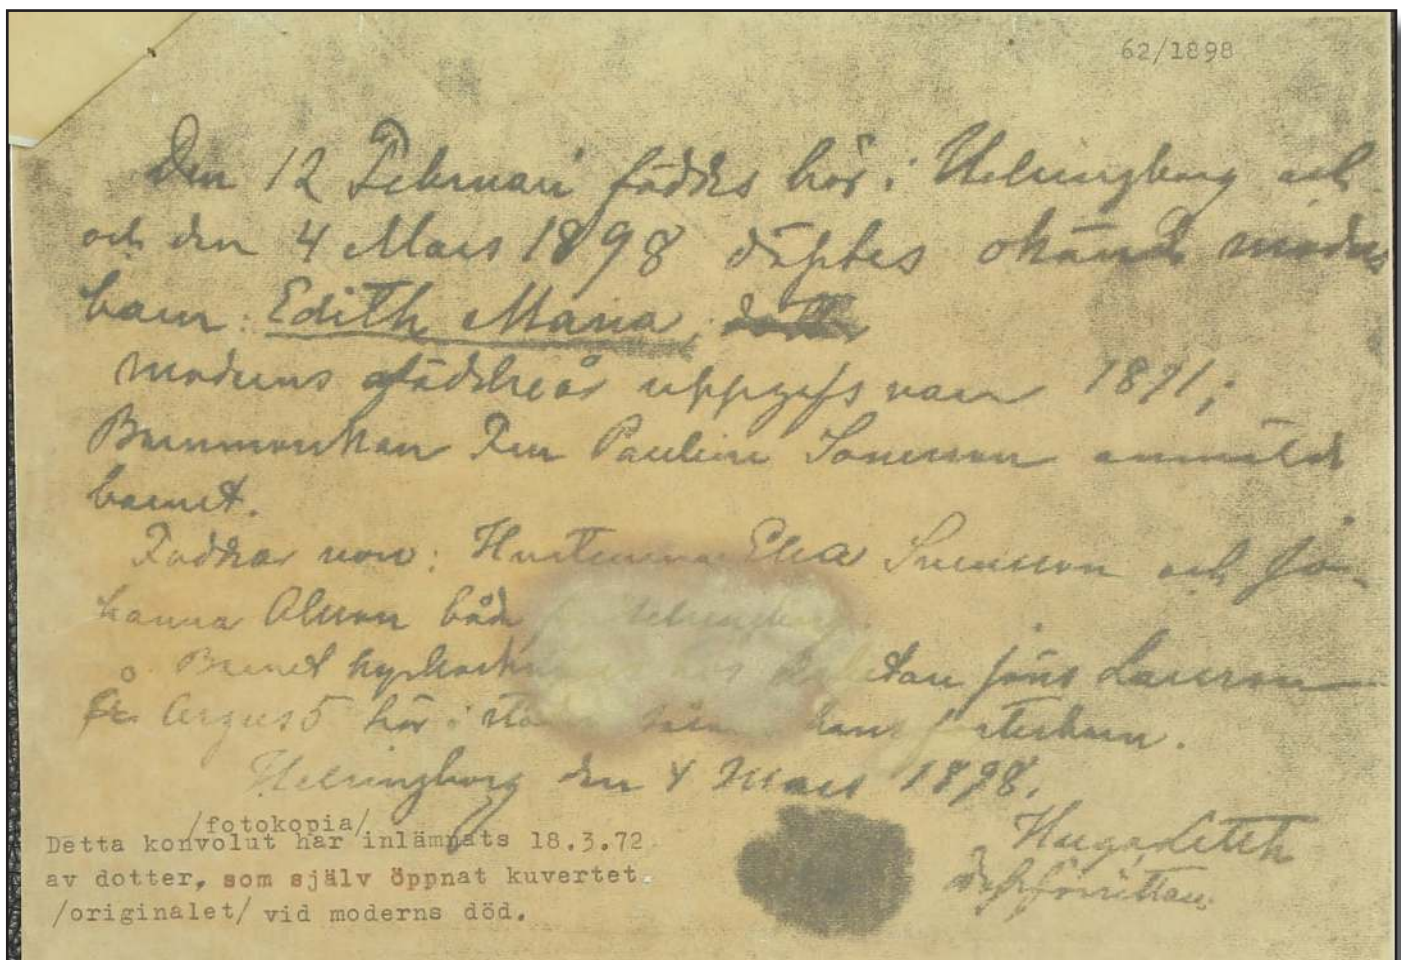 62/1898
Den 12 Februari föddes här i Helsingborg och
och den 4 Mars 1898 döptes okänd moders
barn: Edith Maria,
moderns födelseår uppgifs vara 1871;
Barnmorskan Fru Pauline Sonesson anmälde
barnet.
Faddrar voro: Hustrurna Elsa Svensson och Jo-
hanna Olsson båda Helsingborg.
Barnet Jöns Larsson
Argus 5 här i fosterbarn.
Helsingborg den 4 Mars 1898.
/fotokopia/
Detta konvolut har inlämnats 18.3.72
av dotter, som själv öppnat kuvertet.
/originalet/ vid moderns död.
Hugo
dopförrättare.